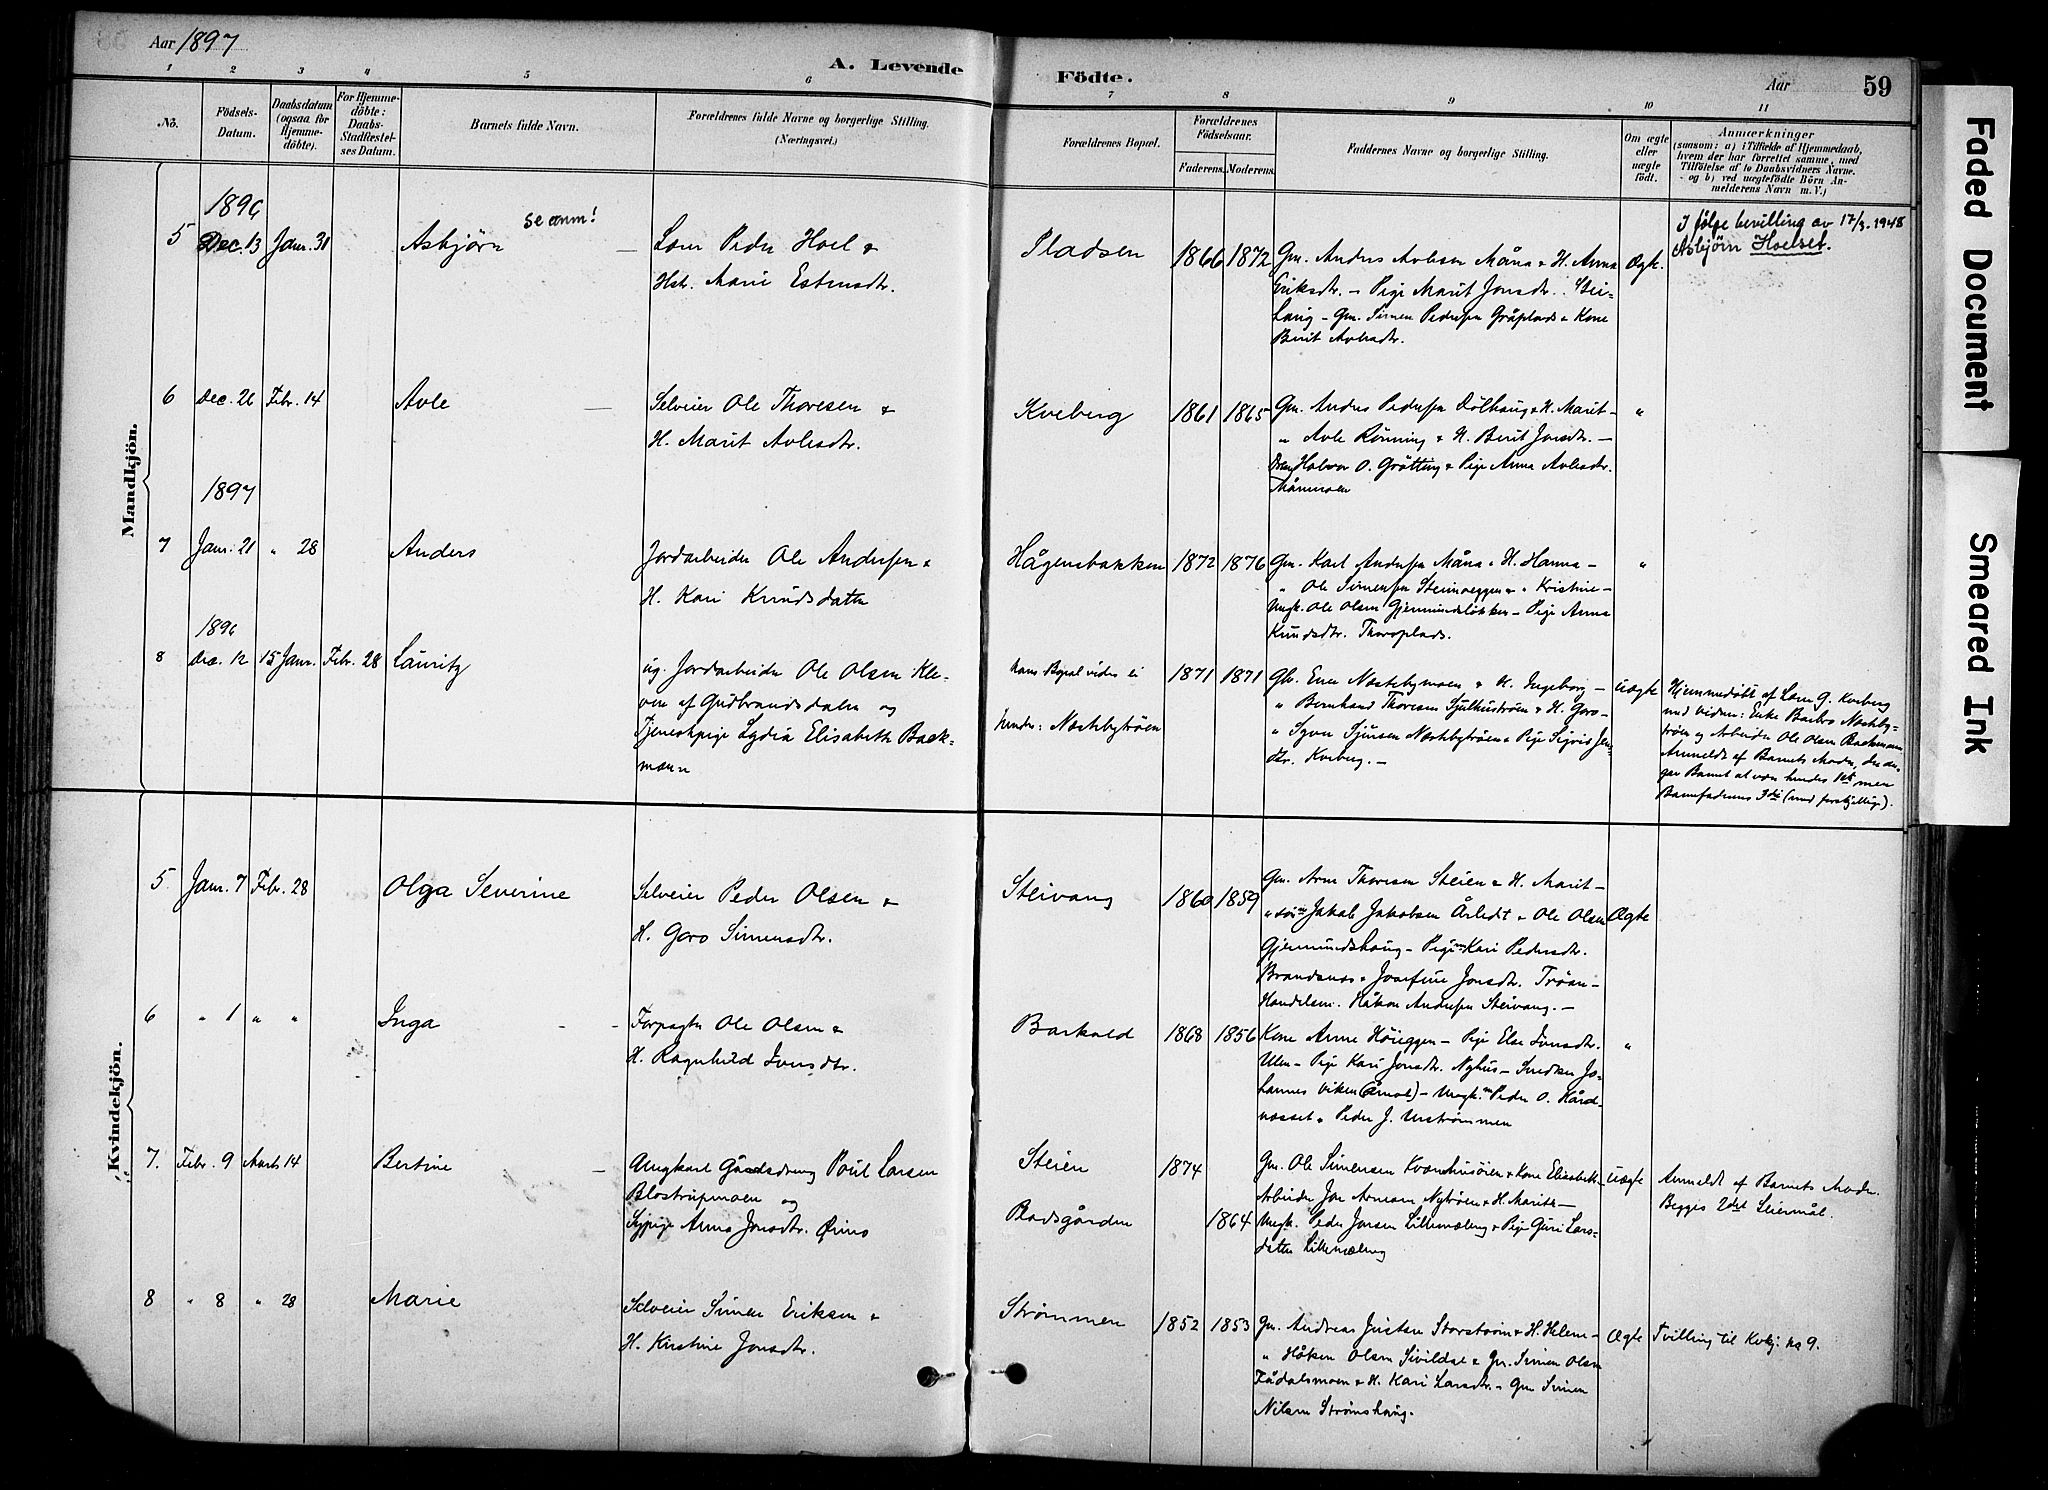 Aar 1897
A. Levende Födte.
Aar
59
1 2 3 4 5 6 7 8 9 10 11
No.
Födsels-Datum.
Daabsdatum (ogsaa for Hjemme-döbte).
For Hjemme-döbte: Daabs-Stadfæstel-ses Datum.
Barnets fulde Navn.
Forældrenes fulde Navne og borgerlige Stilling.
(Næringsvei.)
Forældrenes Bopæl.
Forældrenes Födselsaar.
Faderens. Moderens.
Faddernes Navne og borgerlige Stilling.
Om ægte eller uægte födt.
Anmærkninger
(saasom: a) i Tilfælde af Hjemmedaab,
hvem der har forrettet samme, med
Tilföielse af to Daabsvidners Navne.
og b) ved uægtefödte Börn An-
melderens Navn m. V.)
Mandkjön.
1896
5 Dec. 13 Janr. 31 Asbjörn se anm!
Peder Hoel &
Hstr. Marie Estensdtr.
Pladsen 1866 1872
Gm. Anders Avlesen Måna & H. Anna
Eriksdtr. – Pige Marit Jonsdtr. Stei-
haug – Gm. Simen Pedersen Gråplads & Kone
Berit Avlesdtr.
Ægte.
I følge bevilling av 17/3.1948
Asbjörn Hoelset.
6 Dec. 26 Febr. 14 Avle
Selveier Ole Thoresen &
H. Marit Avlesdtr.
Kveberg 1861 1865
Gm. Anders Pedersen Dölhaug & H. Marit –
" Avle Rönning & H. Berit Jonsdtr. –
Dreng Halvor O. Gråtting & Pige Anna Avlesdtr.
Månmoen
"
1897
7 Janr. 21 " 28 Anders
Jordarbeider Ole Andersen &
H. Kari Knudsdatter
Hågensbakken 1872 1876
Gm. Karl Andersen Måna & H. Hanna –
" Ole Simensen Steimoeggen & " Kristine –
Ungk. Ole Olsen Gjermundsløkken – Pige Anna
Knudsdtr. Thoroplads.
"
1896
8 Dec. 12 15 Janr. Febr. 28 Lauritz
ug. Jordarbeider Ole Olsen Kle-
ven af Gudbrandsdalen og
Tjenestepige Lydia Elisabeth Back-
mann
hans Bopæl vides ei
hendes: Næstebytrøen
1871 1871
Gbr. Næstebymoen & H. Ingeborg –
" Bernhard Thoresen & H. Goro –
" Syver Sjursen Næstebytrøen & Pige Sigrid Jens-
dtr. Kveberg. –
Uægte
Hjemmedøbt af Lærer G. Kveberg
med Vidner: Enke Barbro Næsteby-
trøen og Arbeider Ole Olsen Backmann
Anmeldt af Barnets Moder, der an-
gav Barnet at være hendes 1ste men
Barnefaderens 3die (med forskjellige).
Kvindekjön.
5. Janr. 7 Febr. 28 Olga Severine
Selveier Peder Olsen &
H. Goro Simensdtr.
Steivang 1860 1859
Gm. Arne Thoresen Steien & H. Marit –
Jakob Jakobsen & Ole Olsen
Gjermundshaug – Piger Kari Pedersdtr.
Brandsnæs & Josefine Jonsdtr. Trøen –
Handelsm. Håkon Andersen Steivang. –
Ægte
6 " 1 " " Inga
Forpagter Ole Olsen &
H. Ragnhild Iversdtr.
Barkald 1868 1856
Kone Anne Höieggen – Pige Else Iversdtr.
Ulen – Pige Kari Jonsdtr. Nyhus – Snedker Jo-
hannes Viken (Åmot) – Ungk. Peder O. Hård-
næsset & Peder J. Urstrømmen
"
7. Febr. 9 Marts 14 Bertine
Ungkarl Gårdsdreng Poul Larsen
Blæstrupmoen og
Sypige Anna Jonsdtr. Øimo
Steien 1874
Bådsgården 1864
Gm. Ole Simensen Kvernhusöien & Kone Elisabeth –
Arbeider Jon Arnesen Nytrøen & H. Marit –
Ungk. Peder Jonsen Lillemæleng & Pige Guri Lars-
datter Lillemæleng
Uægte
Anmeldt af Barnets Moder.
Begges 2det Leiermål.
8 " 8 " 28 Marie
Selveier Simen Eriksen &
H. Kirstine Jonsdtr.
Strømmen 1852 1853
Gm. Andreas Jensen Storstrøm & H. Helene –
" Håken Olsen Sivildal & Gm. Simen Olsen
Fådalsmoen & H. Kari Larsdtr. – Gm. Simen
Nilsen Strømshaug.
Ægte
Tvilling til Kvkj. no 9.
Faded Document
Smeared Ink